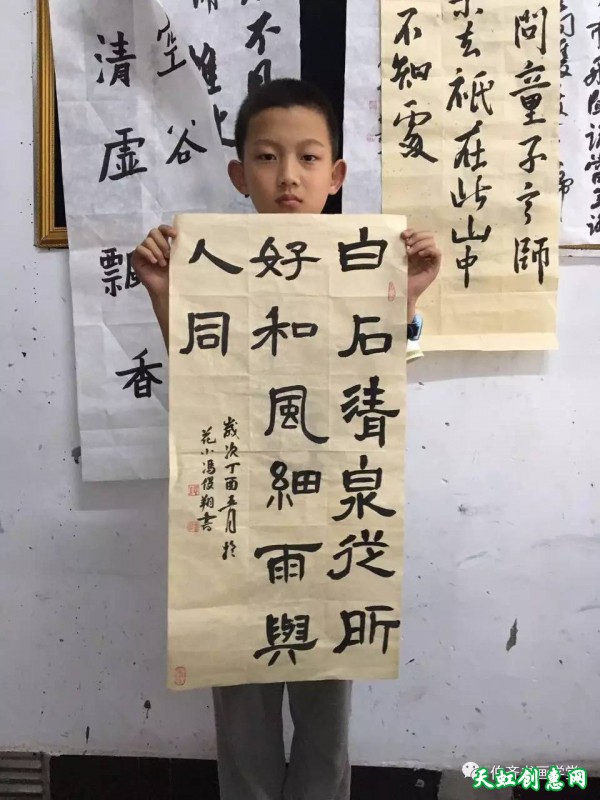 白石清泉從所
好和風細雨與
人同
歲次丁酉五月於
花小馮俊翔書
問童子言師
去祇在此山中
不知處
不見
空谷
清虛飄香
天虹创意网